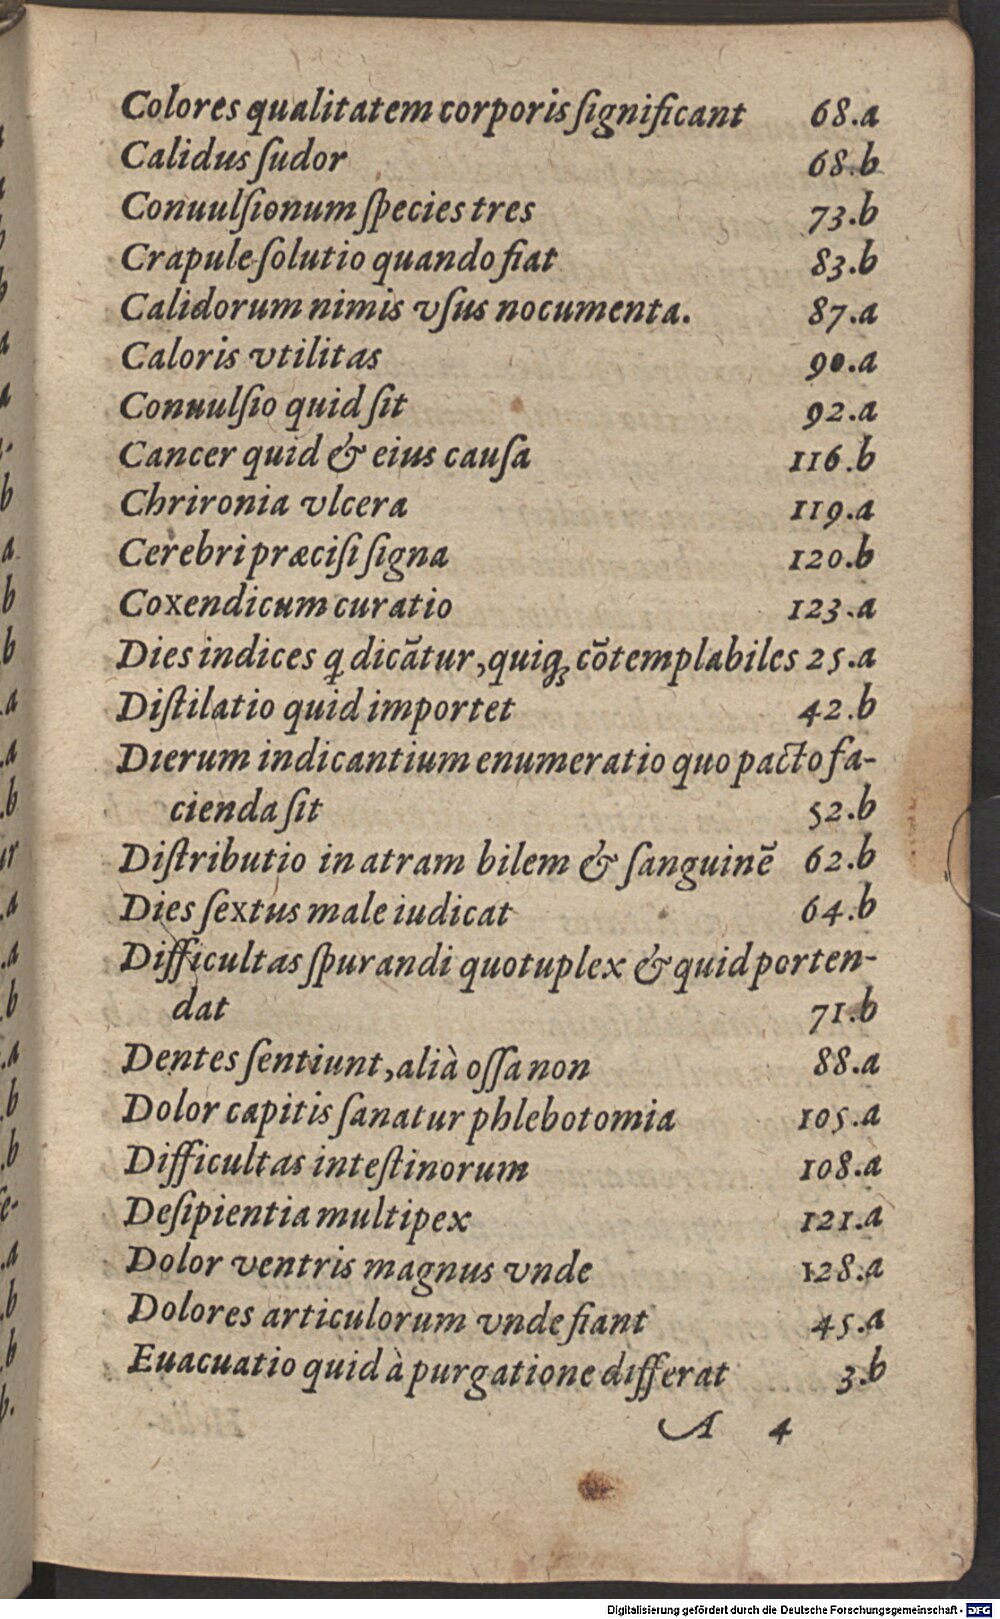 Colores qualitatem corporis ſignificant 68.a
Calidus ſudor 68.b
Conuulſionum ſpecies tres 73.b
Crapule ſolutio quando fiat 83.b
Calidorum nimis vſus nocumenta. 87.a
Caloris vtilitas 90.a
Conuulſio quid ſit 92.a
Cancer quid & eius cauſa 116.b
Chrironia vlcera 119.a
Cerebri præciſi ſigna 120.b
Coxendicum curatio 123.a
Dies indices q dicātur, quiq; cōtemplabiles 25.a
Diſtilatio quid importet 42.b
Dierum indicantium enumeratio quo pacto fa-
cienda ſit 52.b
Diſtributio in atram bilem & ſanguinē 62.b
Dies ſextus male iudicat 64.b
Difficultas ſpurandi quotuplex & quid porten-
dat 71.b
Dentes ſentiunt, alià oſſa non 88.a
Dolor capitis ſanatur phlebotomia 105.a
Difficultas inteſtinorum 108.a
Deſipientia multipex 121.a
Dolor ventris magnus vnde 128.a
Dolores articulorum vnde fiant 45.a
Euacuatio quid à purgatione differat 3.b
A 4
Digitalisierung gefördert durch die Deutsche Forschungsgemeinschaft - DFG